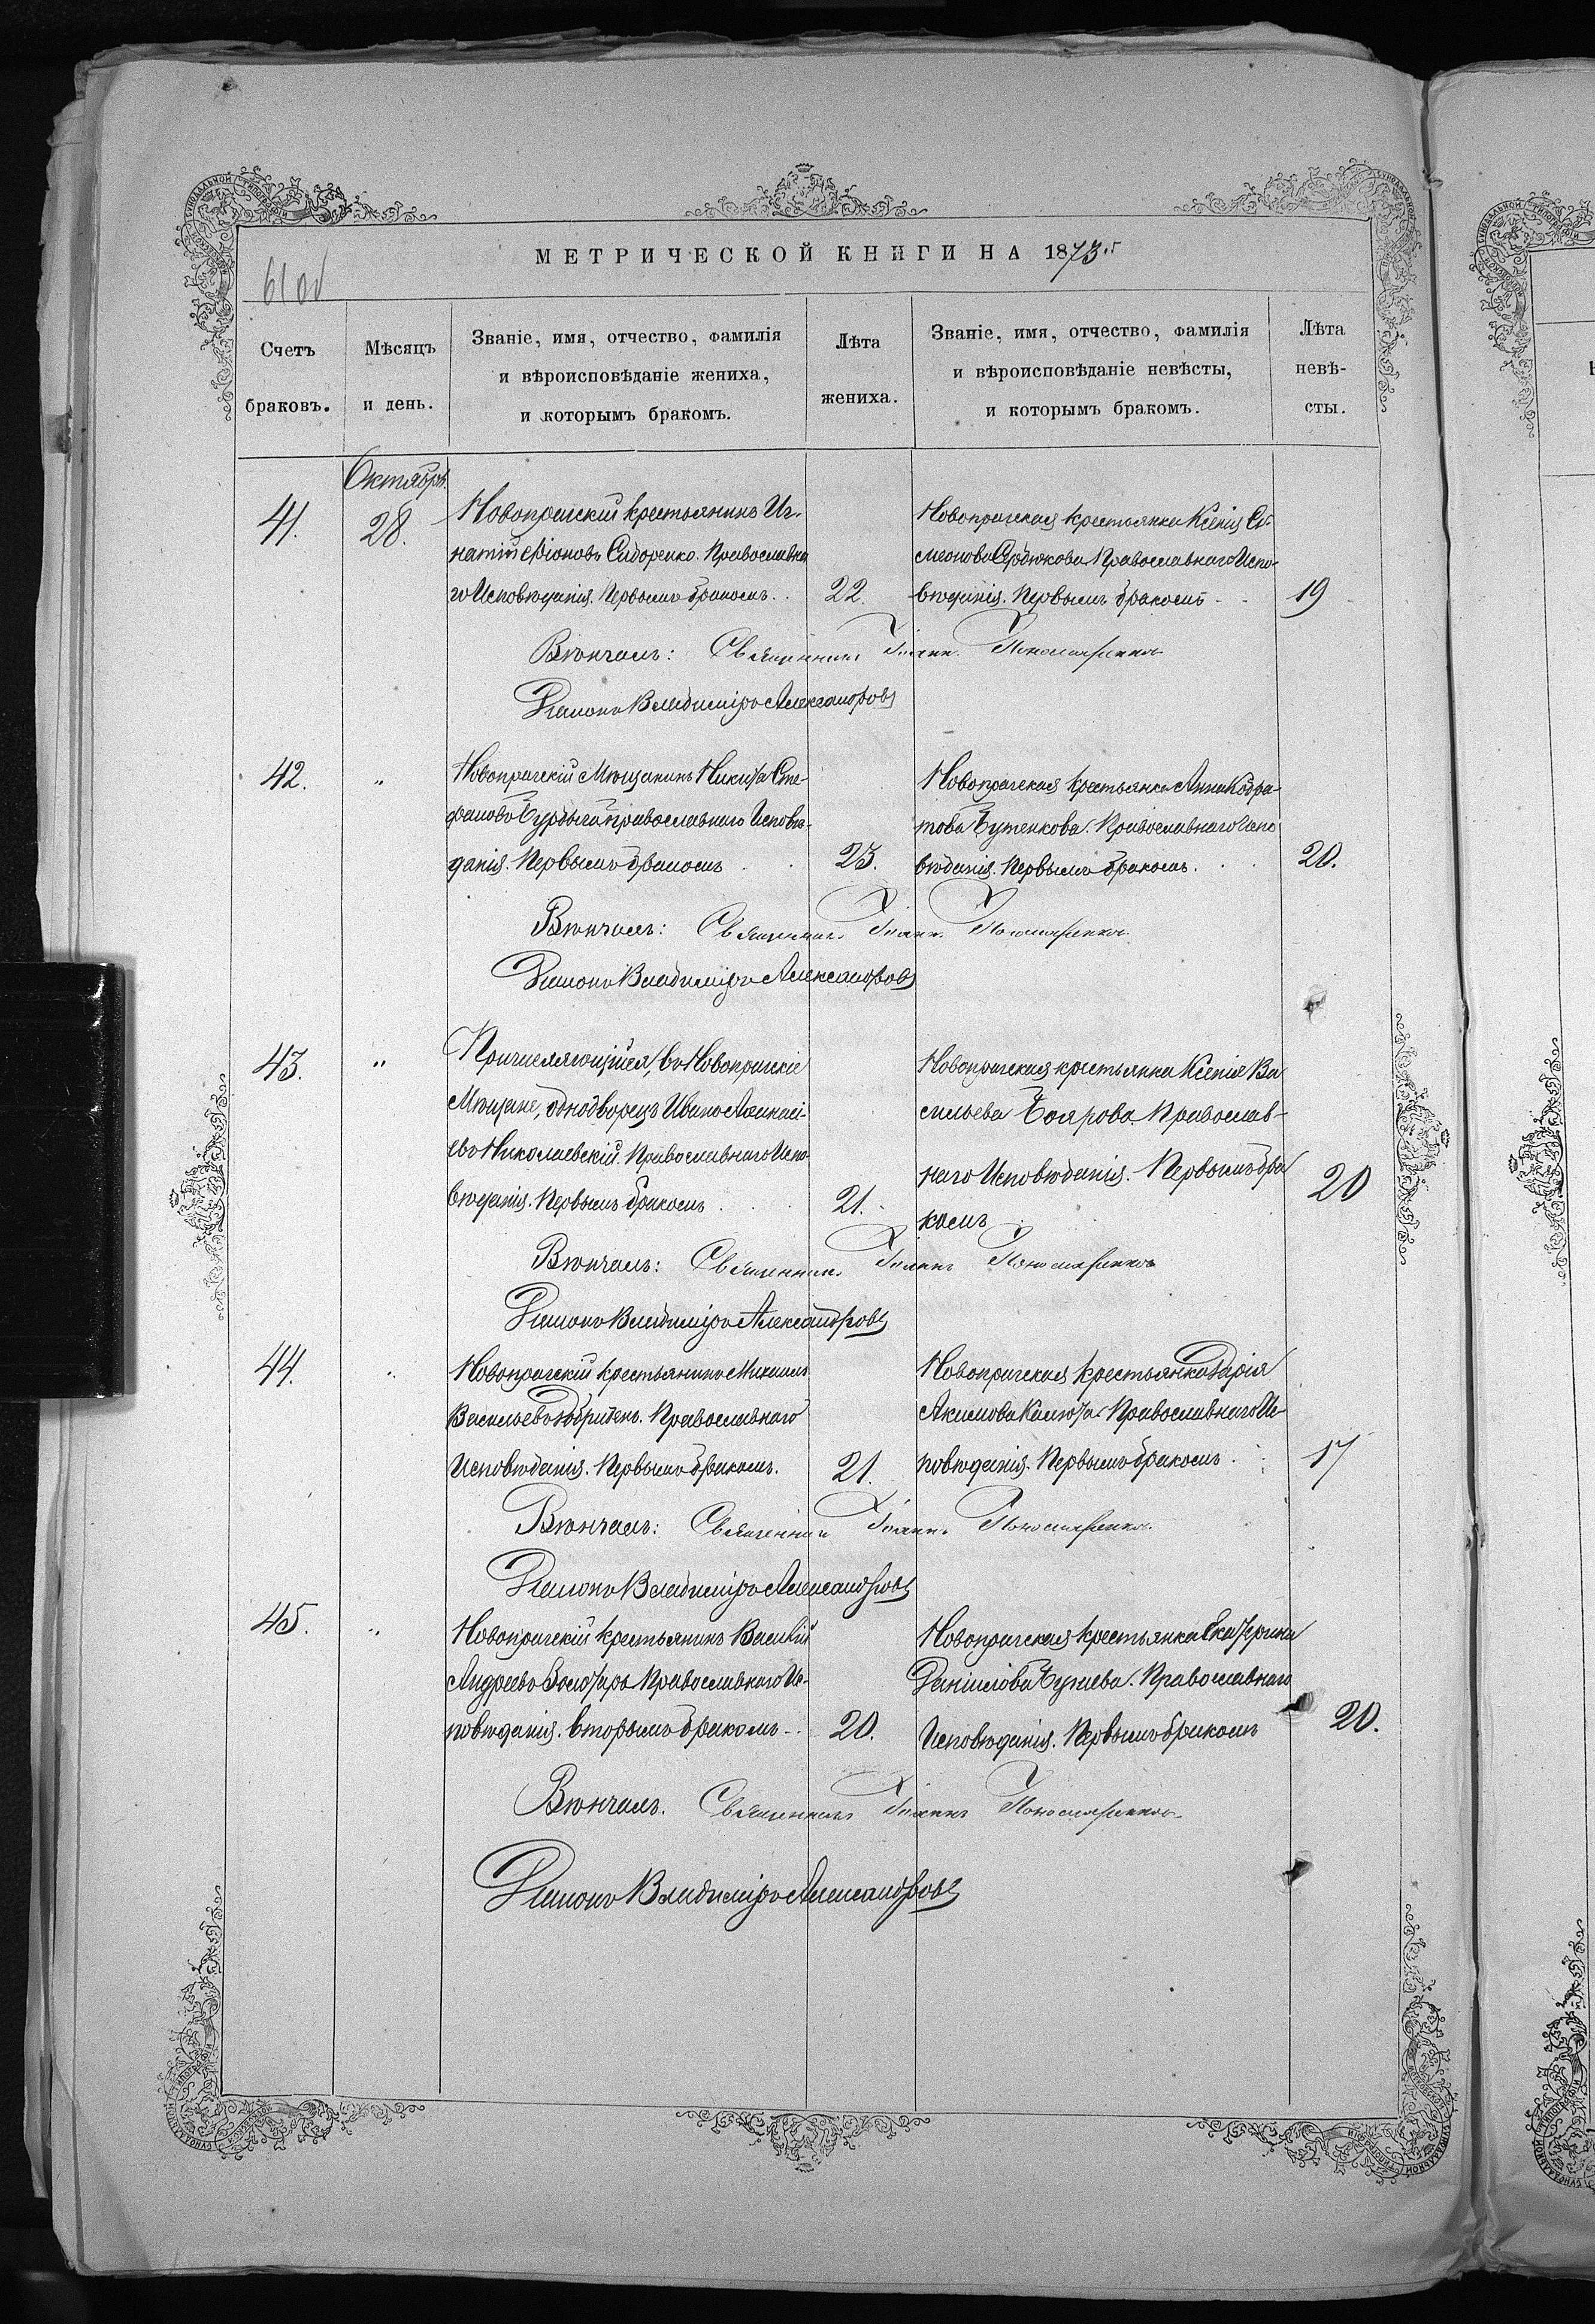 61 об
МЕТРИЧЕСКОЙ КНИГИ НА 1873 г
Счетъ браковъ.
Мѣсяцъ и день.
Званіе, имя, отчество, фамилія
и вѣроисповѣданіе жениха,
и которымъ бракомъ.
Лѣта жениха.
Званіе, имя, отчество, фамилія
и вѣроисповѣданіе невѣсты,
и которымъ бракомъ.
Лѣта невѣ-
сты.
Октябрь.
41.
28.
Новопрагскій крестьянинъ Иг-
натій Сидоренко. Православна
го Исповѣданія. Первымъ бракомъ.
22.
Новопрагская крестьянка Ксенія Си-
меонова Сердюкова Православнаго Испо-
вѣданія. Первымъ бракомъ
19
Вѣнчалъ: Священникъ Іоаннъ Пономаренко
Діаконъ Владиміръ Александровъ
42.
"
Новопрагскій Мѣщанинъ Никита Сте-
фановъ Бурдыга православнаго Исповѣ-
данія. Первымъ бракомъ
23.
Новопрагская Крестьянка Анна Кодра
това Бутенкова. Православнаго Испо
вѣданія. Первымъ бракомъ.
20.
Вѣнчалъ: Священникъ Іоаннъ Пономаренко
Діаконъ Владиміръ Александровъ
43.
"
Причисляющійся, въ Новопрагскіе
Мѣщане, однодворецъ Иванъ Афанасі-
евъ Николаевскій. Православнаго Испо-
вѣданія. Первымъ бракомъ
21.
Новопрагская крестьянка Ксенія Ва
сильева Боярова. Православ-
наго Исповѣданія. Первымъ бра
комъ
20
Вѣнчалъ: Священникъ Іоаннъ Пономаренко
Діаконъ Владиміръ Александровъ
44.
"
Новопрагскій крестьянинъ Михаилъ
Васильевъ Добриденъ. Православнаго
Исповѣданія. Первымъ бракомъ.
21.
Новопрагская Крестьянка Дарія
Акимова Калюта Православнаго Ис-
повѣданія. Первымъ бракомъ.
17
Вѣнчалъ: Священникъ Іоаннъ Пономаренко
Діаконъ Владиміръ Александровъ
45.
"
Новопрагскій крестьянинъ Василій
Андреевъ Золотарь Православнаго Ис-
повѣданія. вторымъ бракомъ
20.
Новопрагская крестьянка Екатерина
Даніилова Бугаева. Православнаго
Исповѣданія. Первымъ бракомъ
20.
Вѣнчалъ. Священникъ Іоаннъ Пономаренко
Діаконъ Владиміръ Александровъ